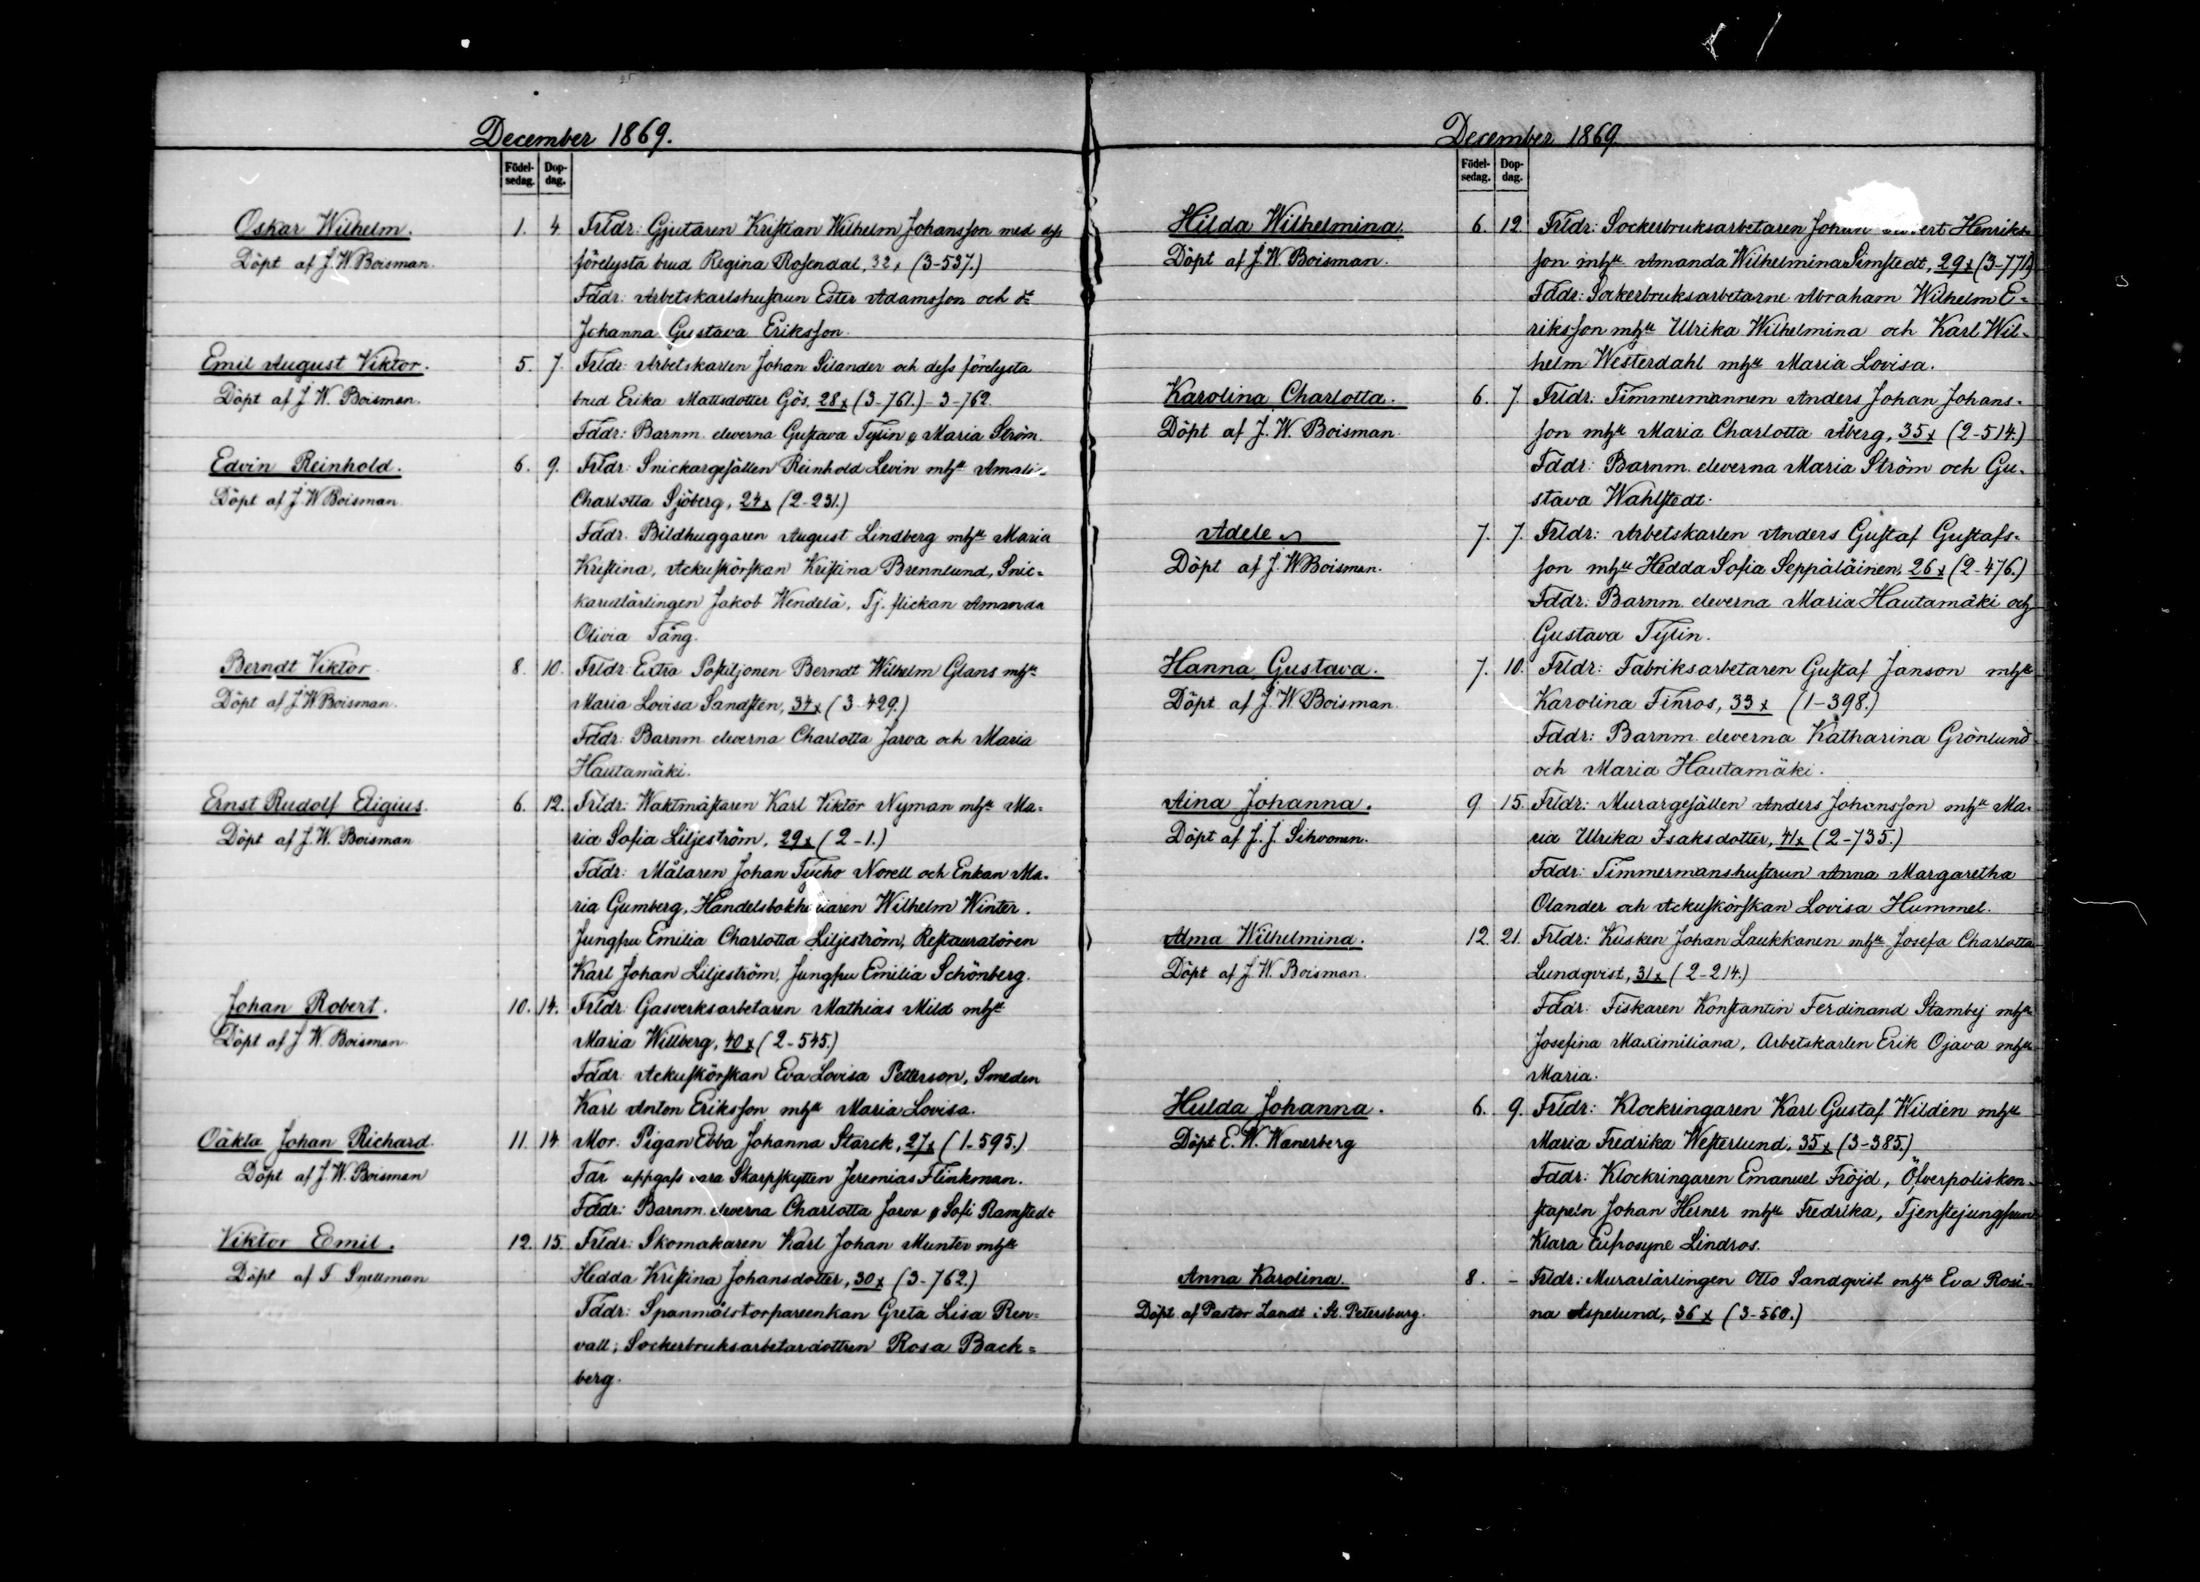 December 1869.
Födel-
sedag.
Dop-
dag.
Oskar Wilhelm. 1. 4 Frldr: Gjutaren Kristian Wilhelm Johansson med dess
Döpt af J. W. Boisman. förelysta brud Regina Rosendal, 32 x (3-537.)
Fddr: Arbetskarlshustrun Ester Adamsson och d:o
Johanna Gustava Eriksson.
Emil August Viktor. 5. 7. Frldr: Arbetskarlen Johan Silander och dess förelysta
Döpt af J. W. Boisman. brud Erika Mattsdotter Gös. 28 x (3-761.) - 3-762.
Fddr: Barnm. eleverna Gustava Tylin o Maria Ström.
Edvin Reinhold. 6. 9. Frldr: Snickargesällen Reinhold Levin mhu
Döpt af J. W Boisman Charlotta Sjöberg, 24 x (2-231.)
Fddr. Bildhuggaren August Lindberg mhu Maria
Kristina, Ackuskörskan Kristina Brennlund, Snic=
karelärlingen Jakob Wendelä, Tj. flickan Amanda
Olivia Tång.
Berndt Viktor 8. 10. Frldr: Extra Postiljonen Berndt Wilhelm Glans mhu
Döpt af J W Boisman. Maria Lovisa Sandsten, 34 x (3-429.)
Fddr: Barnm. eleverna Charlotta Jarva och Maria
Hautamäki.
Ernst Rudolf Eligius. 6. 12. Frldr: Waktmästaren Karl Viktor Nyman mhu Ma=
Döpt af J. W. Boisman ria Sofia Liljeström, 29 x (2-1.)
Fddr: Målaren Johan Tycho Norell och Enkan Ma=
ria Gumberg, Wilhelm Winter.
Jungfru Emilia Charlotta Liljeström, Restauratören
Karl Johan Liljeström, Jungfru Emilia Schönberg.
Johan Robert. 10. 14. Frldr: Gasverksarbetaren Mathias Mild mhu
Döpt af J W. Boisman. Maria Willberg, 40 x (2-545.)
Fddr: Ackuskörskan Eva Lovisa Petterson, Smeden
Karl Anton Eriksson mhu Maria Lovisa.
Oäkta Johan Richard. 11. 14 Mor: Pigan Ebba Johanna Starck, 27 x (1-595.)
Döpt af J. W. Boisman Far uppgafs vara Skarpskytten Jeremias Flinkman.
Fddr: Barnm. eleverna Charlotta Jarva o Sofi Ramstedt
Viktor Emil. 12. 15. Frldr: Skomakaren Karl Johan Munter mhu
Döpt af F Snellman Hedda Kristina Johansdotter, 30 x (3-762.)
Fddr: Spanmålstorpareenkan Greta Lisa Ren=
vall; Sockerbruksarbetardottren Rosa Back=
berg.
December 1869.
Födel-
sedag.
Dop-
dag.
Hilda Wilhelmina 6. 12. Frldr: Sockerbruksarbetaren Johan Henriks=
Döpt af J. W. Boisman. son mhu Amanda Wilhelmina Simstedt, 29 x
Fddr: Sockerbruksarbetarne Abraham Wilhelm E=
riksson mhu Ulrika Wilhelmina och Karl Wil=
helm Westerdahl mhu Maria Lovisa.
Karolina Charlotta. 6. 7. Frldr: Timmermannen Anders Johan Johans=
Döpt af J. W. Boisman. son mhu Maria Charlotta Åberg, 35 x (2-514.)
Fddr: Barnm. eleverna Maria Ström och Gu=
stava Wahlstedt.
Adele 7. 7. Frldr: Arbetskarlen Anders Gustaf Gustafs=
Döpt af J. W Boisman. son mhu Hedda Sofia Seppäläinen, 26 x (2-476.)
Fddr: Barnm. eleverna Maria Hautamäki och
Gustava Tylin.
Hanna Gustava. 7. 10. Frldr: Fabriksarbetaren Gustaf Janson mhu
Döpt af J. W. Boisman. Karolina Finros, 33 x (1-398.)
Fddr: Barnm. eleverna Katharina Grönlund
och Maria Hautamäki.
Aina Johanna. 9 15. Frldr: Murargesällen Anders Johansson mhu Ma=
Döpt af J. J. Sihvonen. ria Ulrika Isaksdotter, 41 x (2-735.)
Fddr: Timmermanshustrun Anna Margaretha
Olander och Ackuskörskan Lovisa Hummel.
Alma Wilhelmina. 12. 21. Frldr: Kusken Johan Laukkanen mhu Josefa Charlotta
Döpt af J. W. Boisman. Lundqvist, 31 x (2-214.)
Fddr: Fiskaren Konstantin Ferdinand Stamby mhu
Josefina Maximiliana, Arbetskarlen Erik Ojava mhu
Maria.
Hulda Johanna. 6. 9. Frldr: Klockringaren Karl Gustaf Wildén mhu
Döpt E. W. Wanerberg Maria Fredrika Westerlund, 35 x (3-385.)
Fddr: Klockringaren Emanuel Fröjd, Öfverpoliskon=
stapeln Johan Herner mhu Fredrika, Tjenstejungfrun
Klara Eufrosyne Lindros.
Anna Karolina. 8. - Frldr: Murarlärlingen Otto Sandqvist mhu Eva Rosi=
Döpt af Pastor Landt i St. Petersburg. na Aspelund, 36 x (3-560.)